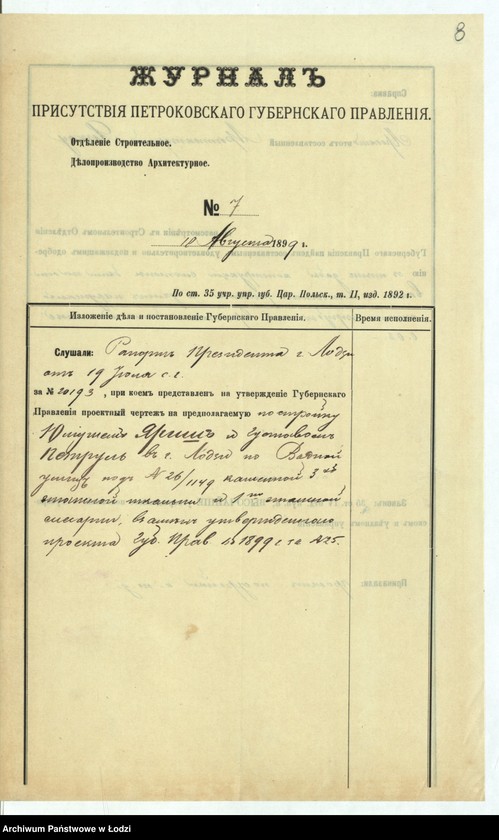 8
ЖУРНАЛЪ
ПРИСУТСТВІЯ ПЕТРОКОВСКАГО ГУБЕРНСКАГО ПРАВЛЕНІЯ.
Отдѣленіе Строительное.
Дѣлопроизводство Архитектурное.
№ 7
10 Августа 1899 г.
По ст. 35 учр. упр. губ. Цар. Польск., т. II, изд. 1892 г.
Изложеніе дѣла и постановленіе Губернскаго Правленія.
Время исполненія.
Слушали: Рапортъ Президента г. Лодзи
отъ 19 Іюля с.г.
за № 20193, при коемъ представленъ на утвержденіе Губернскаго
Правленія проектный чертежъ на предполагаемую постройку
и Густавомъ
въ г. Лодзи по Водной
улицѣ подъ № 26/1149 каменной 3хъ
этажной ткальни и 1но этажной
утвержденнаго
проекта Губ. Прав. въ 1899 г. за № 25.
Archiwum Państwowe w Łodzi